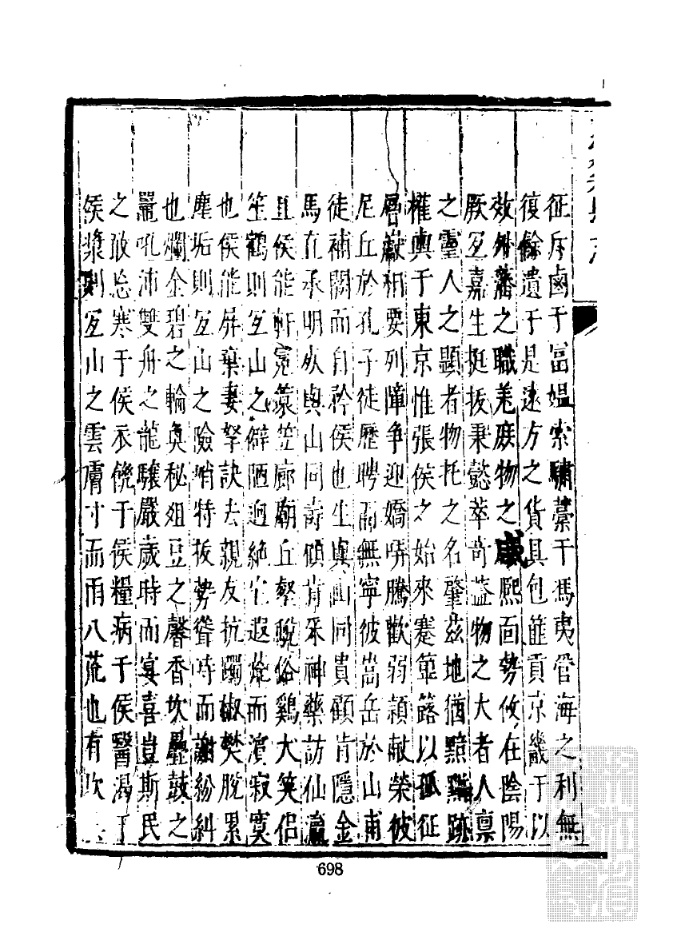 征斥鹵于富媪索驌藁于馮夷管海之利無
復餘遺于是遠方之貨具包篚貢京畿于以
效外藩之職羌庶物之咸熙而勢攸在陰陽
厥互嘉生挺拔秉懿萃奇蓋物之大者人禀
之靈人之顯者物托之名肇茲地猶黯黯跡
權輿于東京惟張侯之始來蹇篳簬以孤征
層巘相要列障争迎嬌哢騰歡弱穎献榮彼
尼丘於孔子徒歷聘而無寧彼嵩岳於山甫
徒補闕而自矜侯也生與山同貴顧肯隱金
馬在承明歿與山同壽傾肯采神藥訪仙瀛
且侯能軒冕蓑笠廊廟丘壑脫俗雞犬笑侣
笙鶴則冱山之僻陋迥絕坌遐荒而濱寂寞
也侯能屏棄妻孥訣去親友抗躅椒樊脫累
塵垢則冱山之險峭特拔勢聳峙而謝紛糾
也爛金碧之輪奐秘俎豆之馨香坎鼉鼓之
鼍吼沛雙舟之龍驤嚴歲時而宴喜豈斯民
之敢忘寒于侯衣饑于侯糧病于侯醫渴于
侯漿則冱山之雲膚寸而雨八荒也有欤
698